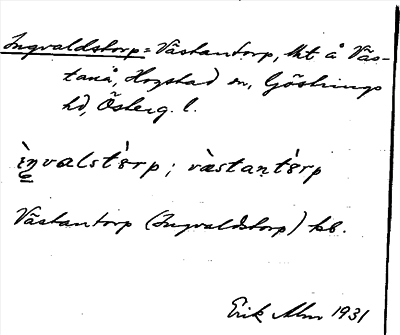 Ingvaldstorp = Västantorp, ht å Väs-
tanå, Hogstad sn, Göstrings
hd, Österg. l.
ìŋvalstörp; vàstantörp
Västantorp (Ingvaldstorp) kb.
Erik Alm 1931